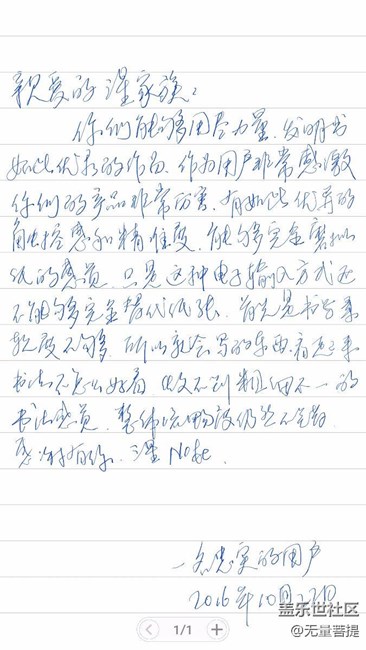 亲爱的 谨家族：
你们能够用尽力量，发明出
如此优秀的作品，作为用户非常感激
你们的产品非常厉害，有如此优异的
触控感和精准度，能够完全模拟
纸的感觉，只是这种电子输入方式还
不能够完全替代纸张，首先是书写柔
软度不够，所以就会写的东西看起来
书法不怎么好看 收不到粗细不一的
书法感觉，整体流畅度仍然不
感谢有你，谨Note.
一名忠实的用户
2016年10月22日
1/1
盖乐世社区
@无量菩提